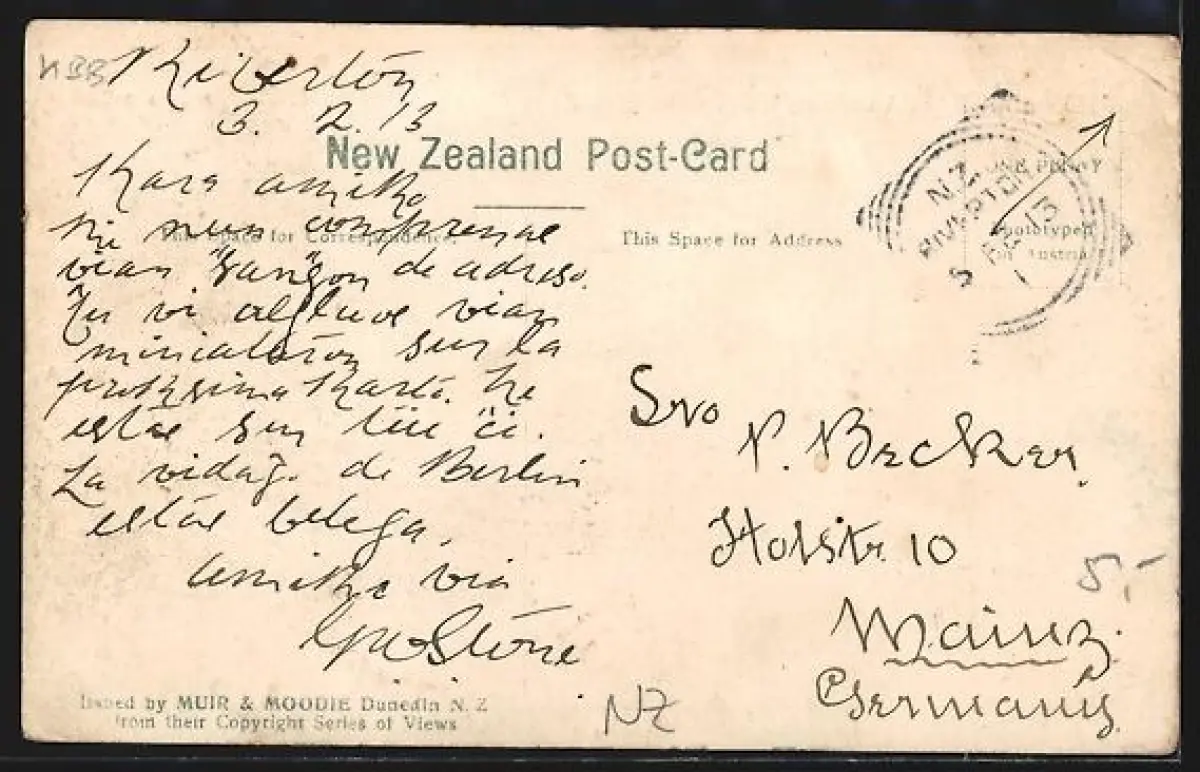 KBB
Riverton
3. 2. 13
New Zealand Post-Card
Kara amiko
Mi nun comprenas
This Space for Correspondence.
vian ŝanĝon de adreso.
Ĉu vi algluos vian
miniaturon sur la
proksima karto. Mi
estas sur tiu ĉi.
La vidaĵ. de Berlin
estas belega.
amike via
Stone
Issued by MUIR & MOODIE Dunedin N. Z
from their Copyright Series of Views
This Space for Address
N.Z.
RIVERTON
5 FE 13
1
ONE PENNY
Phototyped
in Austria
Sro
P. Becker,
Holstr. 10
Mainz.
Germany.
5,-
NZ